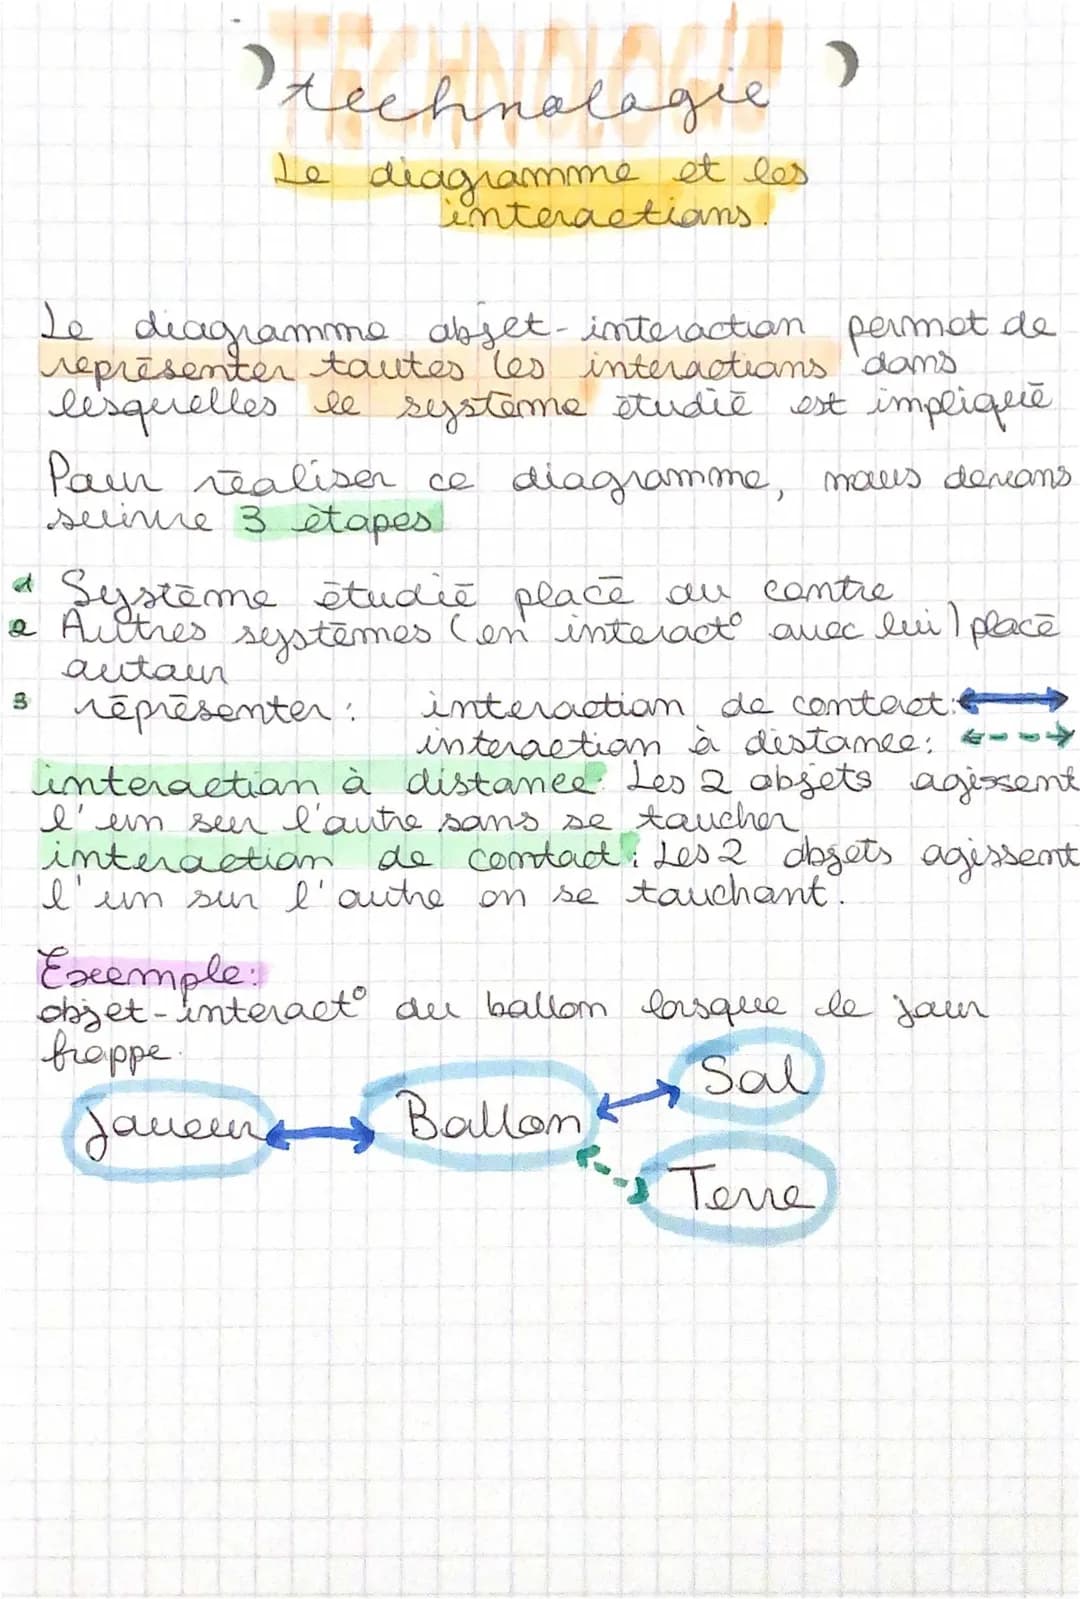 TECHNOLOGIE
technologie
Le diagramme et les
interactions.
Le diagramme objet-interaction permet de
représenter toutes les interactions dans
lesquelles le système étudié est impliqué
Pour réaliser ce diagramme, nous devons
suivre 3 étapes
1 Système étudié placé au centre
2 Autres systèmes (en interact° avec lui) placé
autour
3 réprésenter : interaction de contact:
interaction à distance:
interaction à distance: Les 2 objets agissent
l'un sur l'autre sans se toucher
interaction de contact: Les 2 objets agissent
l'un sur l'autre en se touchant.
Exemple:
objet-interact° du ballon lorsque le jour
frappe.
Joueur
Ballon
Sol
Terre